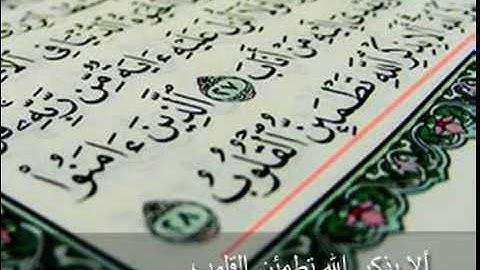 ٱلدُّنْيَا فِى
عَلَيْهِ ءَايَةٌ مِّن رَّبِّهِۦ
إِلَيْهِ مَنْ أَنَابَ ٢٧ ٱلَّذِينَ ءَامَنُوا۟
بِذِكْرِ ٱللَّهِ تَطْمَئِنُّ ٱلْقُلُوبُ ٢٨
ألا بذكر الله تطمئن القلوب